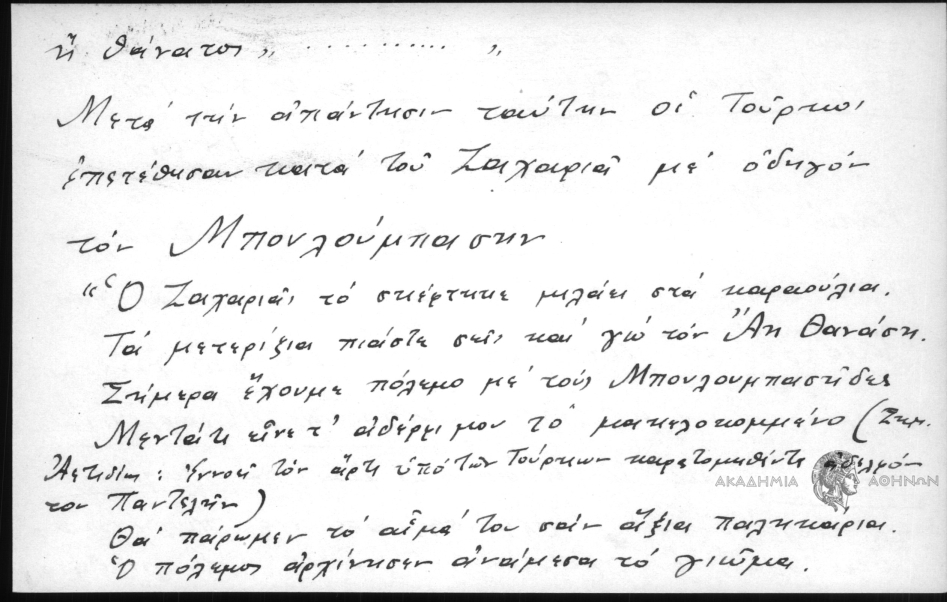 ἤ θάνατος „ ............. „
Μετά τήν ἀπάντησιν ταύτην οἱ Τοῦρκοι
ἐπετέθησαν κατά τοῦ Ζαχαριᾶ μέ ὁδηγόν
τόν Μπουλούμπασην
“Ὁ Ζαχαριᾶς τό σκέφτηκε μιλάει στά καραούλια.
Τά μετερίζια πιάστε σεῖς καί γώ τόν Ἅη Θανάση.
Σήμερα ἔχουμε πόλεμο μέ τούς Μπουλουμπασῆδες
εἶνε τ' ἀδέρφι μου τό μακελοκομμένο (Σημ.
Ἀετιδίου: Ἐννοεῖ τόν ἄρτι ὑπό τῶν Τούρκων καρατομηθέντα ἀδελφόν
του Παντελῆν)
Θά πάρωμεν τό αἷμά του σάν ἄξια παληκάρια.
Ὁ πόλεμος ἀρχίνησεν ἀνάμεσα τό γιῶμα.
ΑΚΑΔΗΜΙΑ ΑΘΗΝΩΝ